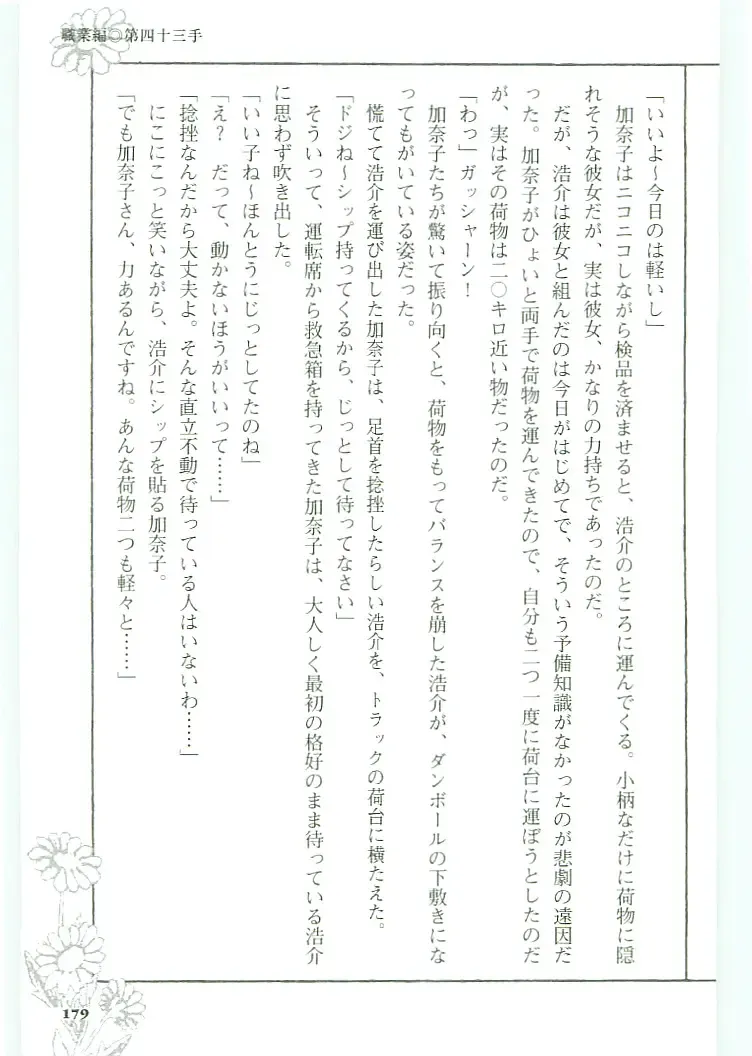 職業編◎第四十三手
「いいよ～今日のは軽いし」
加奈子はニコニコしながら検品を済ませると、浩介のところに運んでくる。小柄なだけに荷物に隠
れそうな彼女だが、実は彼女、かなりの力持ちであったのだ。
だが、浩介は彼女と組んだのは今日がはじめてで、そういう予備知識がなかったのが悲劇の遠因だ
った。加奈子がひょいと両手で荷物を運んできたので、自分も二つ一度に荷台に運ぼうとしたのだ
が、実はその荷物は二〇キロ近い物だったのだ。
「わっ」ガッシャーン！
加奈子たちが驚いて振り向くと、荷物をもってバランスを崩した浩介が、ダンボールの下敷きにな
ってもがいている姿だった。
慌てて浩介を運び出した加奈子は、足首を捻挫したらしい浩介を、トラックの荷台に横たえた。
「ドジね～シップ持ってくるから、じっとして待ってなさい」
そういって、運転席から救急箱を持ってきた加奈子は、大人しく最初の格好のまま待っている浩介
に思わず吹き出した。
「いい子ね～ほんとうにじっとしてたのね」
「え？　だって、動かないほうがいいって……」
「捻挫なんだから大丈夫よ。そんな直立不動で待っている人はいないわ……」
にこにこっと笑いながら、浩介にシップを貼る加奈子。
「でも加奈子さん、力あるんですね。あんな荷物二つも軽々と……」
179